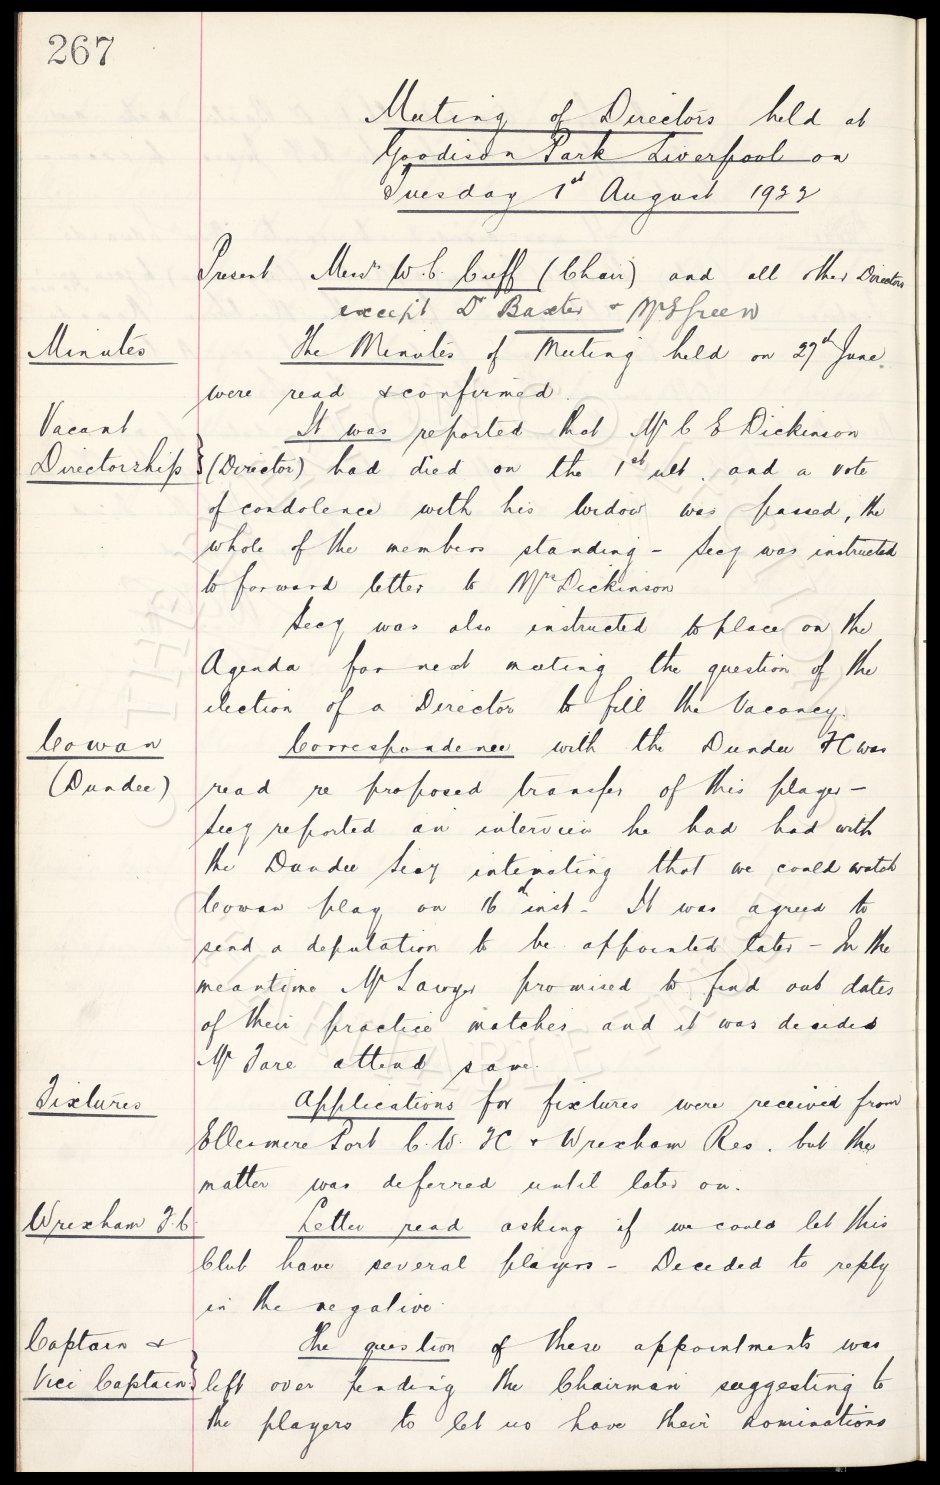 267
Meeting of Directors held at
Goodison Park Liverpool on
Tuesday 1st August 1922
Present Messrs W. C. Cuff (Chair) and all other Directors
except Dr Baxter & Mr Green
Minutes
The Minutes of Meeting held on 27th June
were read & confirmed.
Vacant
Directorship
It was reported that Mr C E Dickinson
(Director) had died on the 1st ult. and a vote
of condolence with his widow was passed, the
whole of the members standing - Secy was instructed
to forward letter to Mrs Dickinson
Secy was also instructed to place on the
Agenda for next meeting the question of the
election of a Director to fill the Vacancy.
Cowan
(Dundee)
Correspondence with the Dundee FC was
read re proposed transfer of this player -
Secy reported an interview he had had with
the Dundee Secy intimating that we could watch
Cowan play on 16th inst - It was agreed to
send a deputation to be appointed later - In the
meantime Mr Sawyer promised to find out dates
of their practice matches and it was decided
Mr Fare attend same.
Fixtures
Applications for fixtures were received from
Ellesmere Port C.W. FC & Wrexham Res. but the
matter was deferred until later on.
Wrexham F.C.
Letter read asking if we could let this
Club have several players - Decided to reply
in the negative.
Captain &
Vice Captain
The question of these appointments was
left over pending the Chairman suggesting to
the players to let us have their nominations